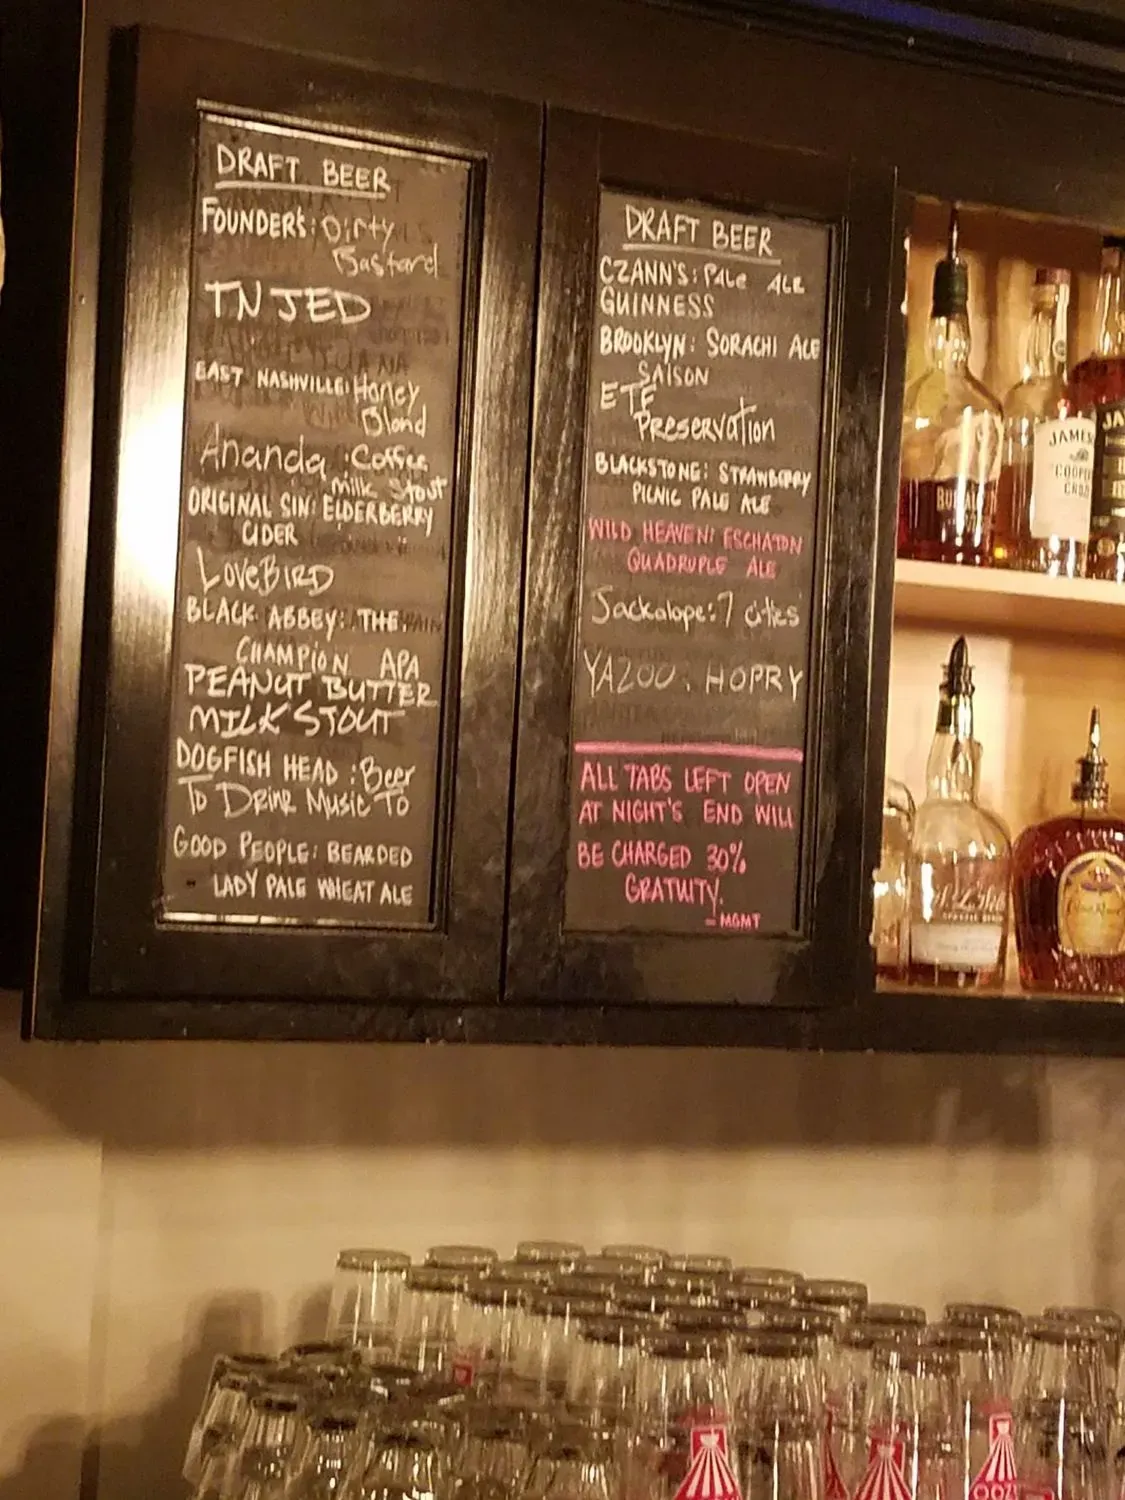 DRAFT BEER
FOUNDERS: Dirty
Bastard
TN JED
EAST NASHVILLE: Honey
Blond
Ananda: Coffee
Milk Stout
ORIGINAL SIN: ELDERBERRY
CIDER
LOVEBIRD
BLACK ABBEY: THE
CHAMPION APA
PEANUT BUTTER
MILK STOUT
DOGFISH HEAD: Beer
To Drink Music To
GOOD PEOPLE: BEARDED
LADY PALE WHEAT ALE
DRAFT BEER
CZANN'S: Pale ALE
GUINNESS
BROOKLYN: SORACHI ACE
SAISON
ETF
Preservation
BLACKSTONE: STRAWBERRY
PICNIC PALE ALE
WILD HEAVEN: ESCHATON
QUADRUPLE ALE
Jackalope: 7 cities
YAZOO: HOPRY
ALL TABS LEFT OPEN
AT NIGHT'S END WILL
BE CHARGED 30%
GRATUITY.
- MGMT
JAMES
COOPE
CROZE
Crown Royal